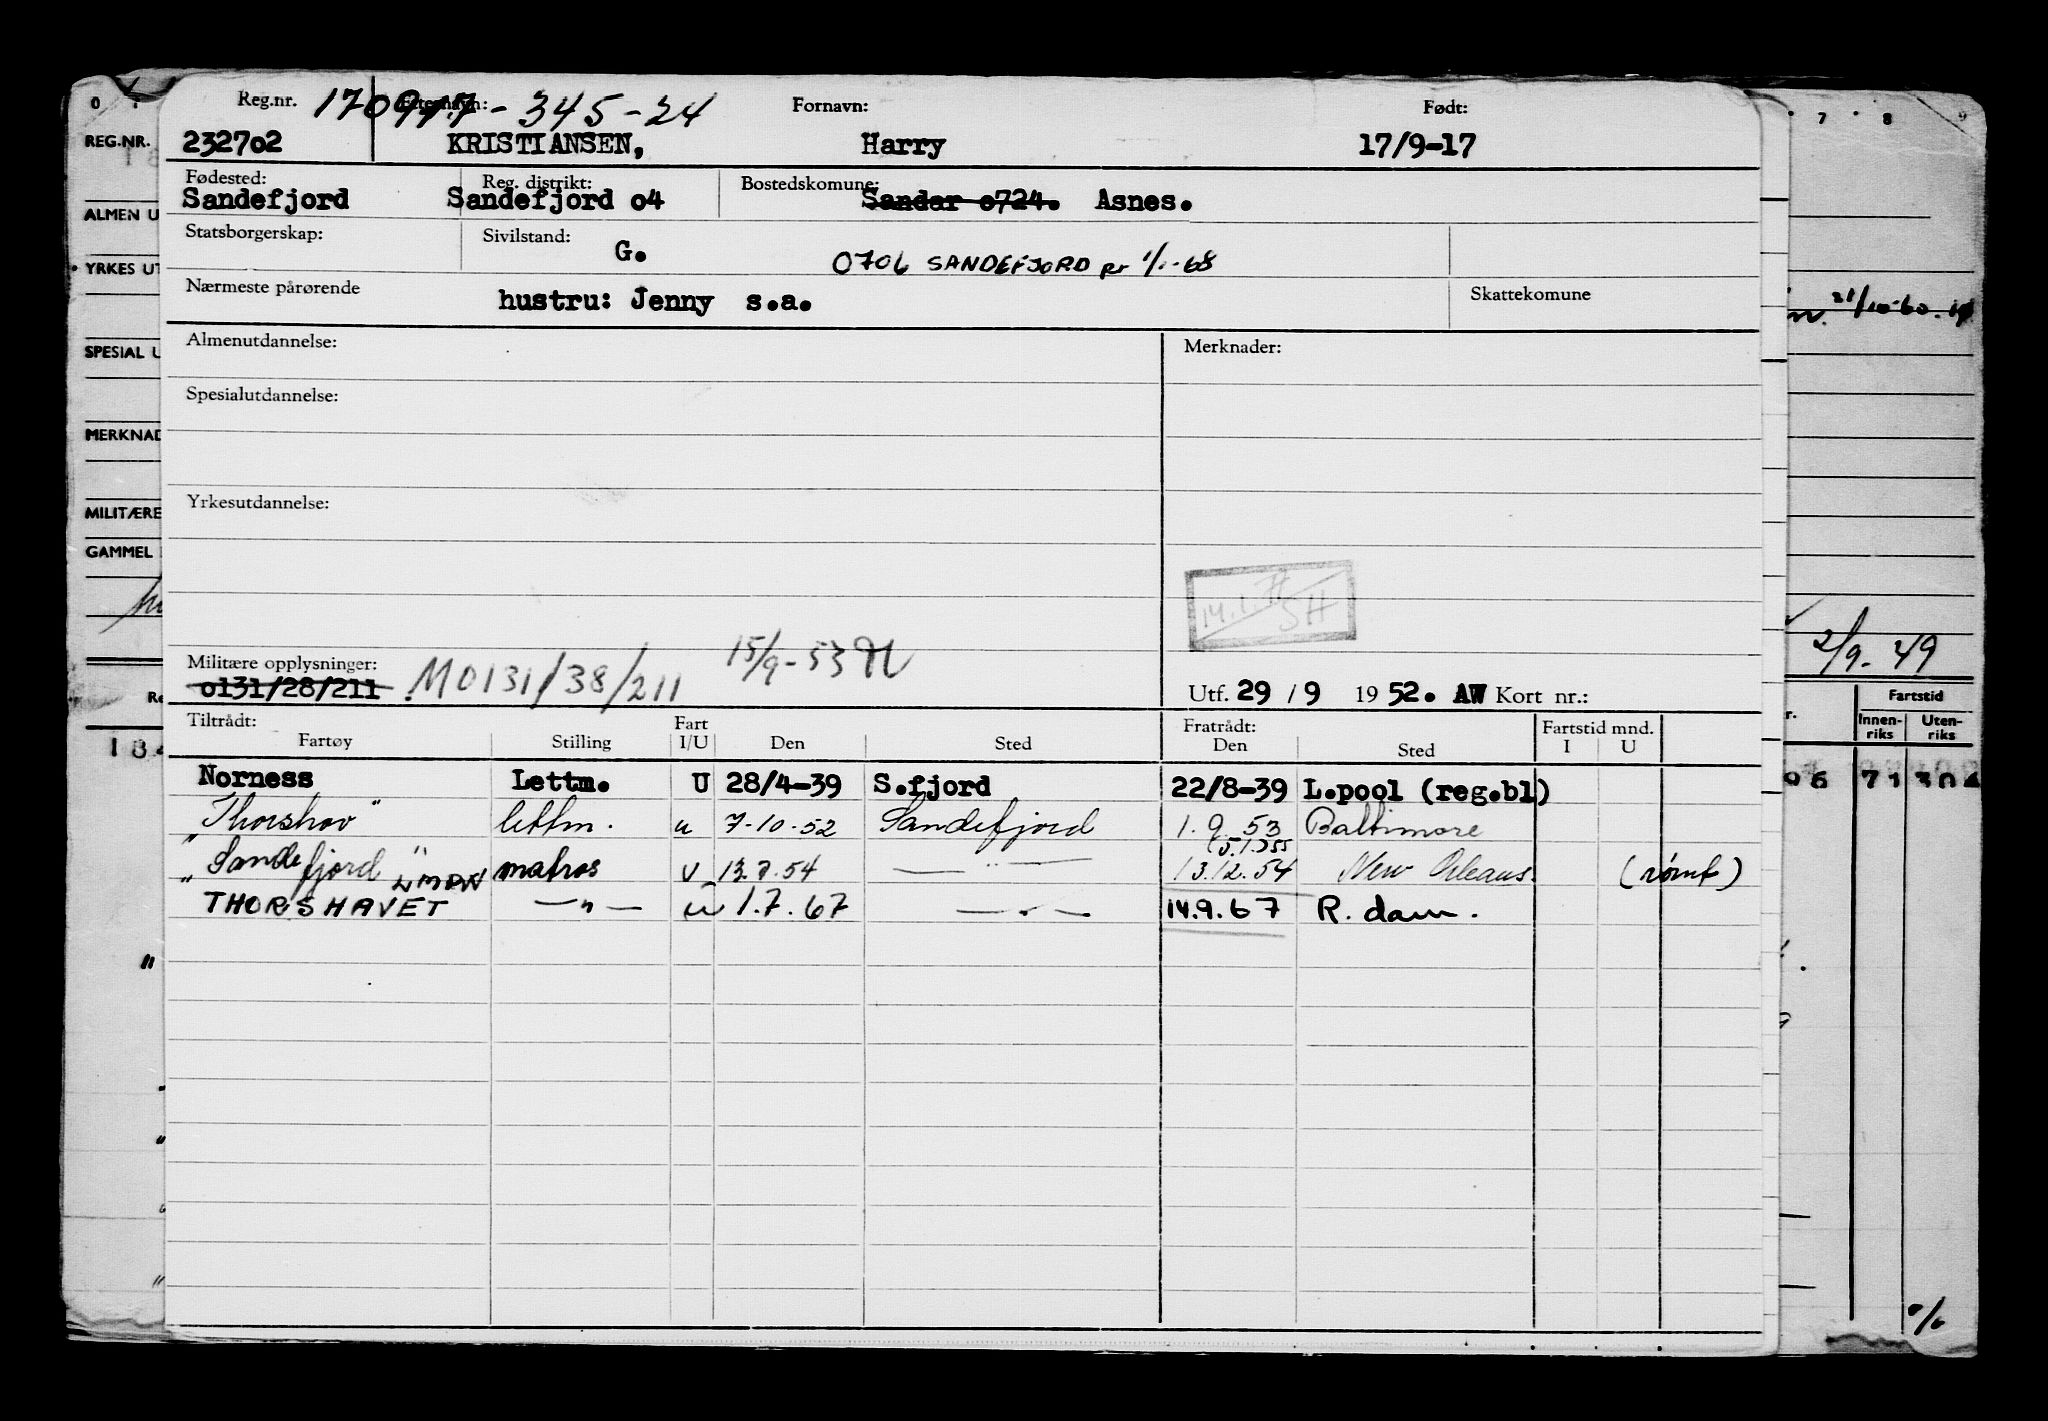 Reg.nr. Etternavn: 170917-345-24 Fornavn: Født:
REG.NR. 232702 KRISTIANSEN, Harry 17/9-17 7 8 9
Fødested: Reg. distrikt: Bostedskommune:
Sandefjord Sandefjord o4 Sandar o724. Asnes.
ALMEN U
Statsborgerskap: Sivilstand: G.
YRKES UT 0706 SANDEFJORD pr 1/1-68
Nærmeste pårørende hustru: Jenny s.a. Skattekomune 21/10-60.
Almenutdannelse: Merknader:
SPESIAL U
Spesialutdannelse:
MERKNAD
Yrkesutdannelse:
MILITÆRE
GAMMEL
14.1. SH
Militære opplysninger: 15/9-53 2/9-49
o131/28/211 . M0131/38/211 Utf. 29 / 9 19 52. AW Kort nr.:
Tiltrådt: Fart Fratrådt: Fartstid mnd. Fartstid
Fartøy Stilling I/U Den Sted Den Sted I U Innen-riks Uten-riks
Norness Lettm. U 28/4-39 S.fjord 22/8-39 L.pool (reg.bl) 96 71 304
"Thorshov" lettm. u 7-10-52 Sandefjord 1.9.53 Baltimore
5.1.55
"Sandefjord" matros U 13.7.54 — " — 13.12.54 New Orleans. (rømt)
THORSHAVET — " — u 1.7.67 — " — 14.9.67 R.dam.